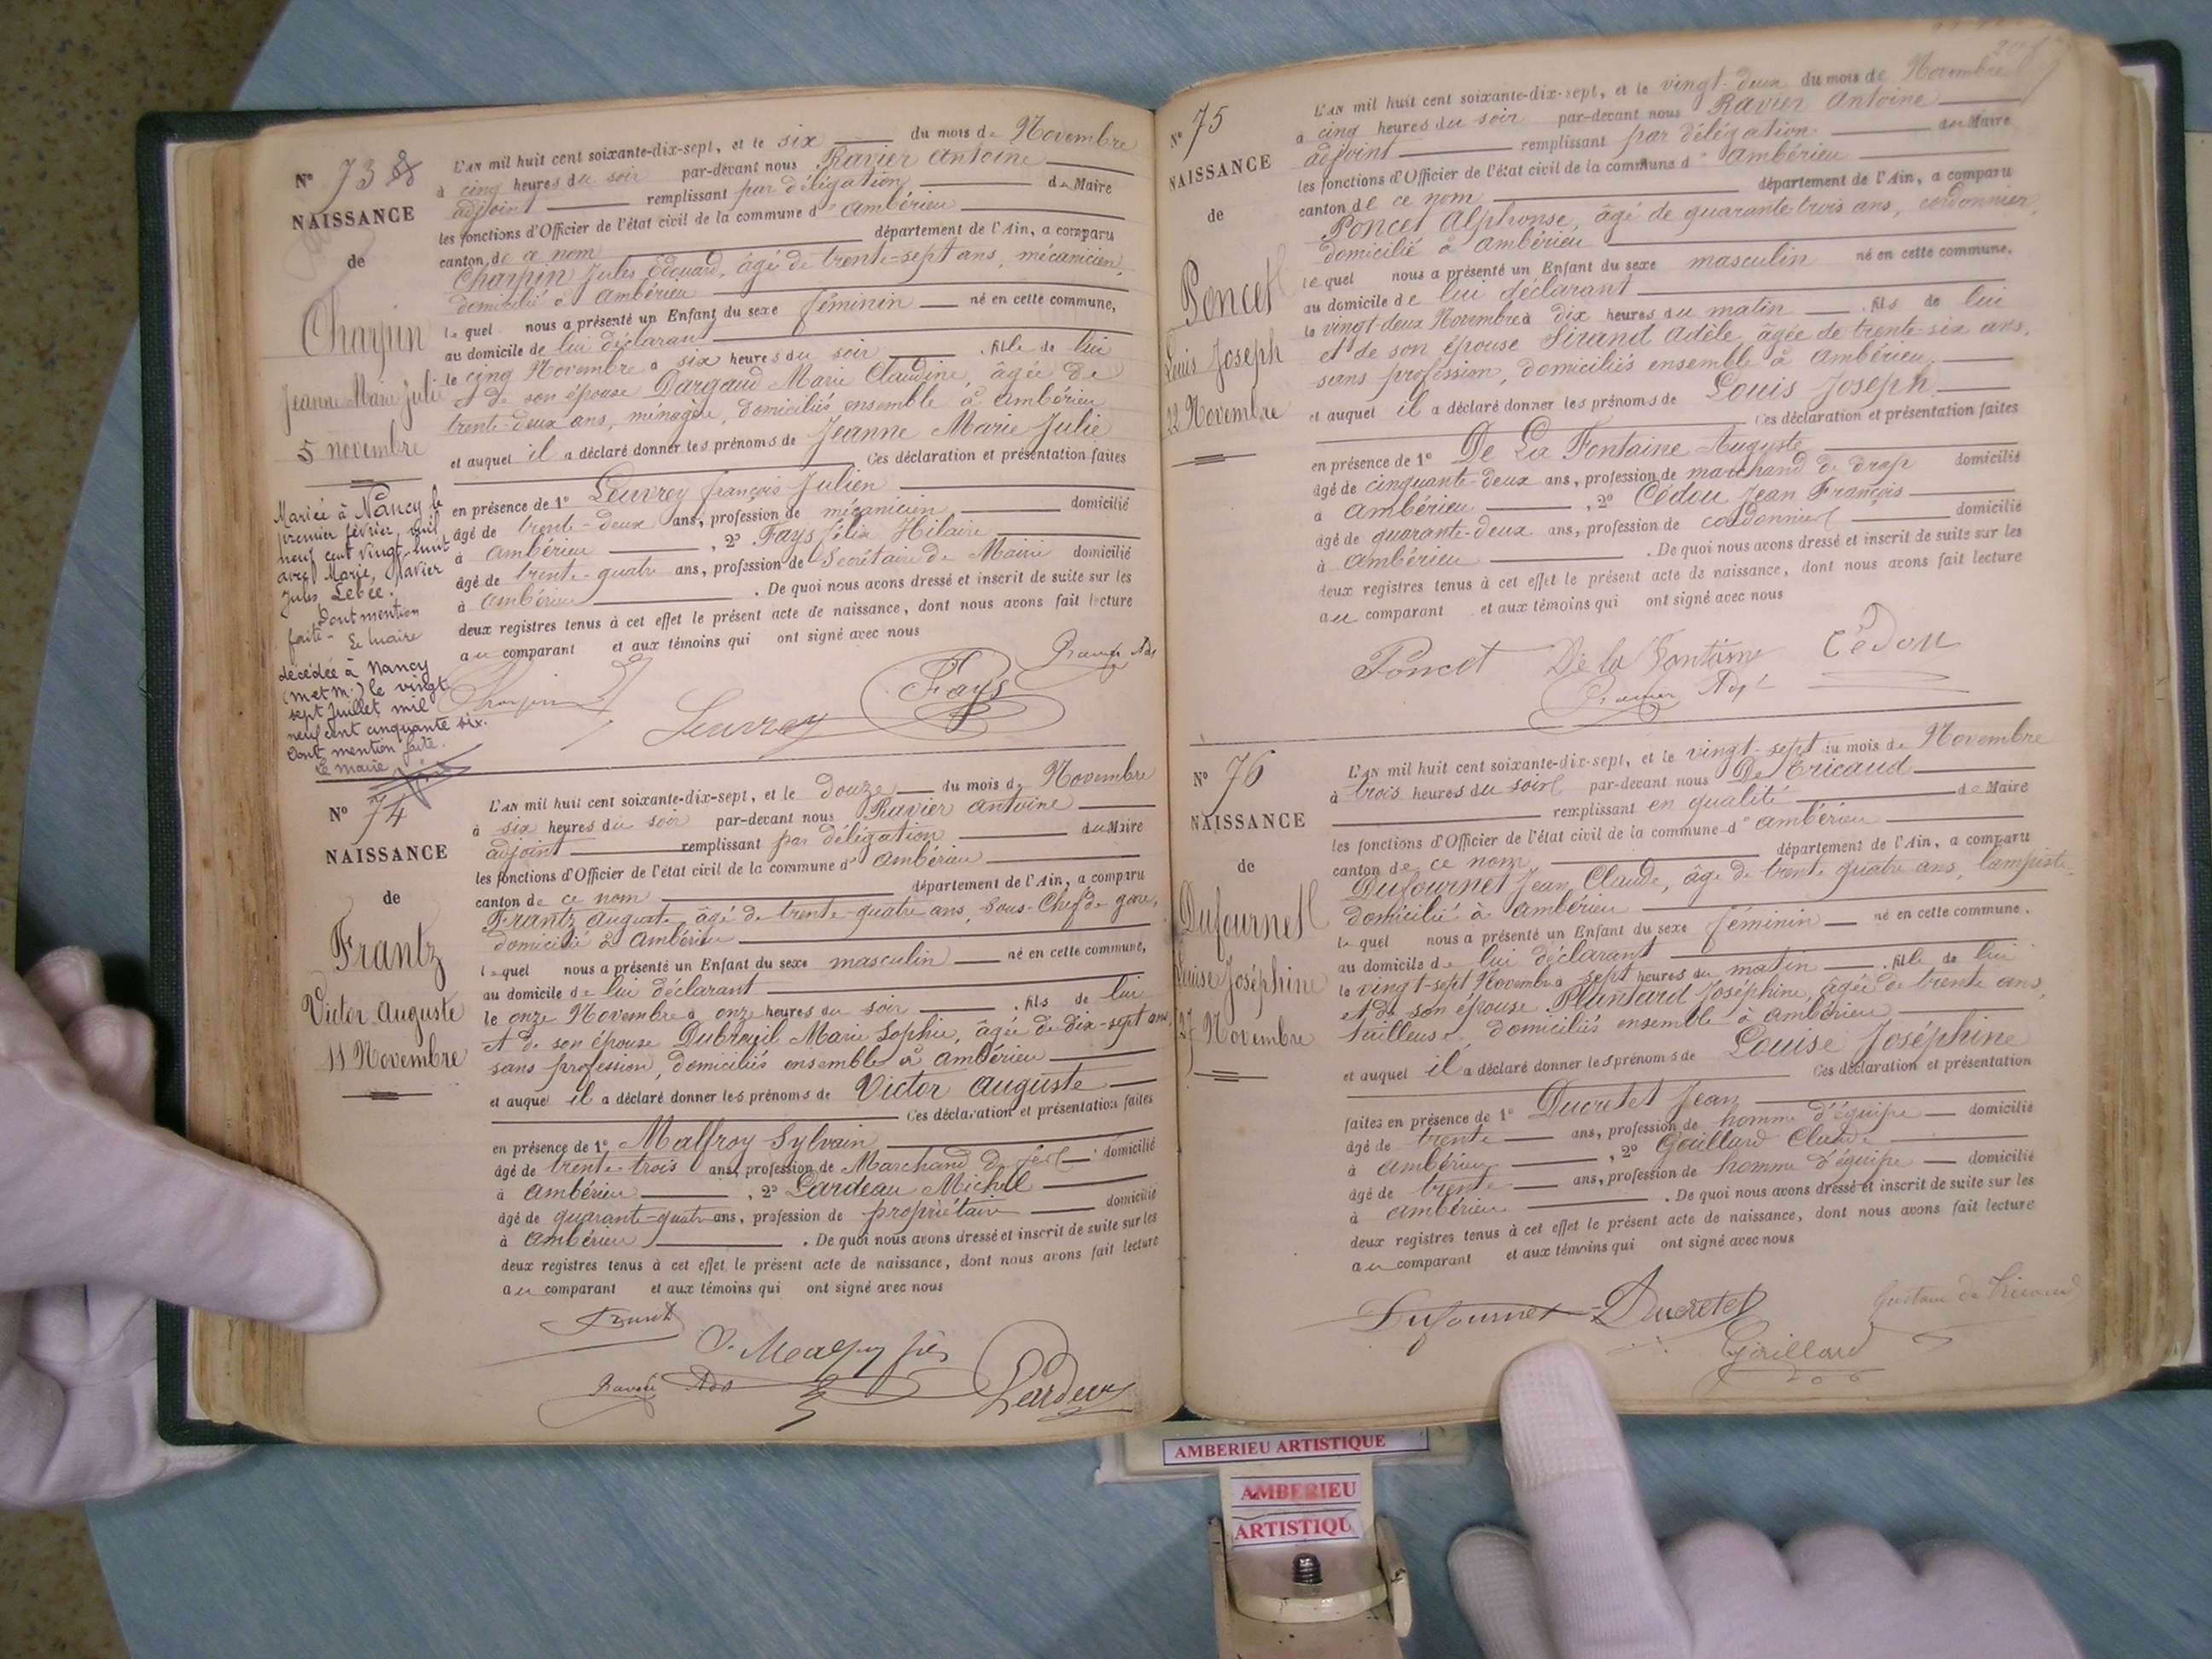 N° 73
NAISSANCE
de
Charpin
Jeanne Marie Julie
5 novembre
Mariée à Nancy le
premier février, mil
neuf cent vingt-huit
avec Marie, Xavier
Jules Lebée.
Dont mention
faite - Le maire
décédée à Nancy
(M et M.) le vingt
sept Juillet mil
neuf cent cinquante six.
Dont mention faite.
Le maire
L'AN mil huit cent soixante-dix-sept, et le six du mois de Novembre
à cinq heures du soir par-devant nous Ravier Antoine
adjoint remplissant par délégation du Maire
les fonctions d'Officier de l'état civil de la commune d' Ambérieu
canton de ce nom département de l'Ain, a comparu
Charpin Jules Edouard, âgé de trente-sept ans, mécanicien,
domicilié à Ambérieu
lequel nous a présenté un Enfant du sexe féminin né en cette commune,
au domicile de lui déclarant
le cinq Novembre à six heures du soir, fille de lui
et de son épouse Dargaud Marie Claudine, âgée de
trente-deux ans, ménagère, domiciliés ensemble à Ambérieu
et auquel il a déclaré donner les prénoms de Jeanne Marie Julie
Ces déclaration et présentation faites
en présence de 1° Leuvrey françois Julien
âgé de trente-deux ans, profession de mécanicien domicilié
à Ambérieu, 2° Fays félix Hilaire
âgé de trente-quatre ans, profession de Secrétaire de Mairie domicilié
à Ambérieu. De quoi nous avons dressé et inscrit de suite sur les
deux registres tenus à cet effet le présent acte de naissance, dont nous avons fait lecture
au comparant et aux témoins qui ont signé avec nous
Charpin Leuvrey Fays Ravier Adj
N° 74
NAISSANCE
de
Frantz
Victor Auguste
11 Novembre
L'AN mil huit cent soixante-dix-sept, et le douze du mois de Novembre
à six heures du soir par-devant nous Ravier Antoine
adjoint remplissant par délégation du Maire
les fonctions d'Officier de l'état civil de la commune d' Ambérieu
canton de ce nom département de l'Ain, a comparu
Frantz Auguste, âgé de trente-quatre ans, Sous-Chef de gare,
domicilié à Ambérieu
lequel nous a présenté un Enfant du sexe masculin né en cette commune,
au domicile de lui déclarant
le onze Novembre à onze heures du soir, fils de lui
et de son épouse Dubreuil Marie Sophie, âgée de dix-sept ans
sans profession, domiciliés ensemble à Ambérieu
et auquel il a déclaré donner les prénoms de Victor Auguste
Ces déclaration et présentation faites
en présence de 1° Malfroy Sylvain
âgé de trente-trois ans, profession de Marchand de fer domicilié
à Ambérieu, 2° Lardeau Michel
âgé de quarante-quatre ans, profession de propriétaire domicilié
à Ambérieu. De quoi nous avons dressé et inscrit de suite sur les
deux registres tenus à cet effet le présent acte de naissance, dont nous avons fait lecture
au comparant et aux témoins qui ont signé avec nous
Ravier Adj
N° 75
NAISSANCE
de
Poncet
Louis Joseph
22 Novembre
L'AN mil huit cent soixante-dix-sept, et le vingt-deux du mois de Novembre
à cinq heures du soir par-devant nous Ravier Antoine
adjoint remplissant par délégation du Maire
les fonctions d'Officier de l'état civil de la commune d' Ambérieu
canton de ce nom département de l'Ain, a comparu
Poncet Alphonse, âgé de quarante trois ans, cordonnier,
domicilié à Ambérieu
lequel nous a présenté un Enfant du sexe masculin né en cette commune,
au domicile de lui déclarant
le vingt-deux Novembre à dix heures du matin, fils de lui
et de son épouse Sirand Adèle, âgée de trente-six ans,
sans profession, domiciliés ensemble à Ambérieu,
et auquel il a déclaré donner les prénoms de Louis Joseph
Ces déclaration et présentation faites
en présence de 1° De La Fontaine Auguste
âgé de cinquante-deux ans, profession de marchand de drap domicilié
à Ambérieu, 2° Cédou Jean François
âgé de quarante-deux ans, profession de cordonnier domicilié
à Ambérieu. De quoi nous avons dressé et inscrit de suite sur les
deux registres tenus à cet effet le présent acte de naissance, dont nous avons fait lecture
au comparant et aux témoins qui ont signé avec nous
Poncet De la Fontaine Cédou
Ravier Adj
N° 76
NAISSANCE
de
Dufournet
Louise Joséphine
27 Novembre
L'AN mil huit cent soixante-dix-sept, et le vingt-sept du mois de Novembre
à trois heures du soir par-devant nous De Tricaud
remplissant en qualité de Maire
les fonctions d'Officier de l'état civil de la commune d' Ambérieu
canton de ce nom département de l'Ain, a comparu
Dufournet Jean Claude, âgé de trente quatre ans, lampiste
domicilié à Ambérieu
lequel nous a présenté un Enfant du sexe féminin né en cette commune,
au domicile de lui déclarant
le vingt-sept Novembre à sept heures du matin, fille de lui
et de son épouse Plantard Joséphine, âgée de trente ans,
tailleuse, domiciliés ensemble à Ambérieu
et auquel il a déclaré donner les prénoms de Louise Joséphine
Ces déclaration et présentation
faites en présence de 1° Ducretet Jean
âgé de trente ans, profession de homme d'équipe domicilié
à Ambérieu, 2° Gaillard Claude
âgé de trente ans, profession de homme d'équipe domicilié
à Ambérieu. De quoi nous avons dressé et inscrit de suite sur les
deux registres tenus à cet effet le présent acte de naissance, dont nous avons fait lecture
au comparant et aux témoins qui ont signé avec nous
Dufournet Ducretet Gustave de Tricaud
Gaillard
AMBERIEU ARTISTIQUE
AMBERIEU
ARTISTIQU